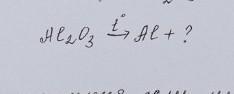 Al₂O₃ —t°→ Al + ?